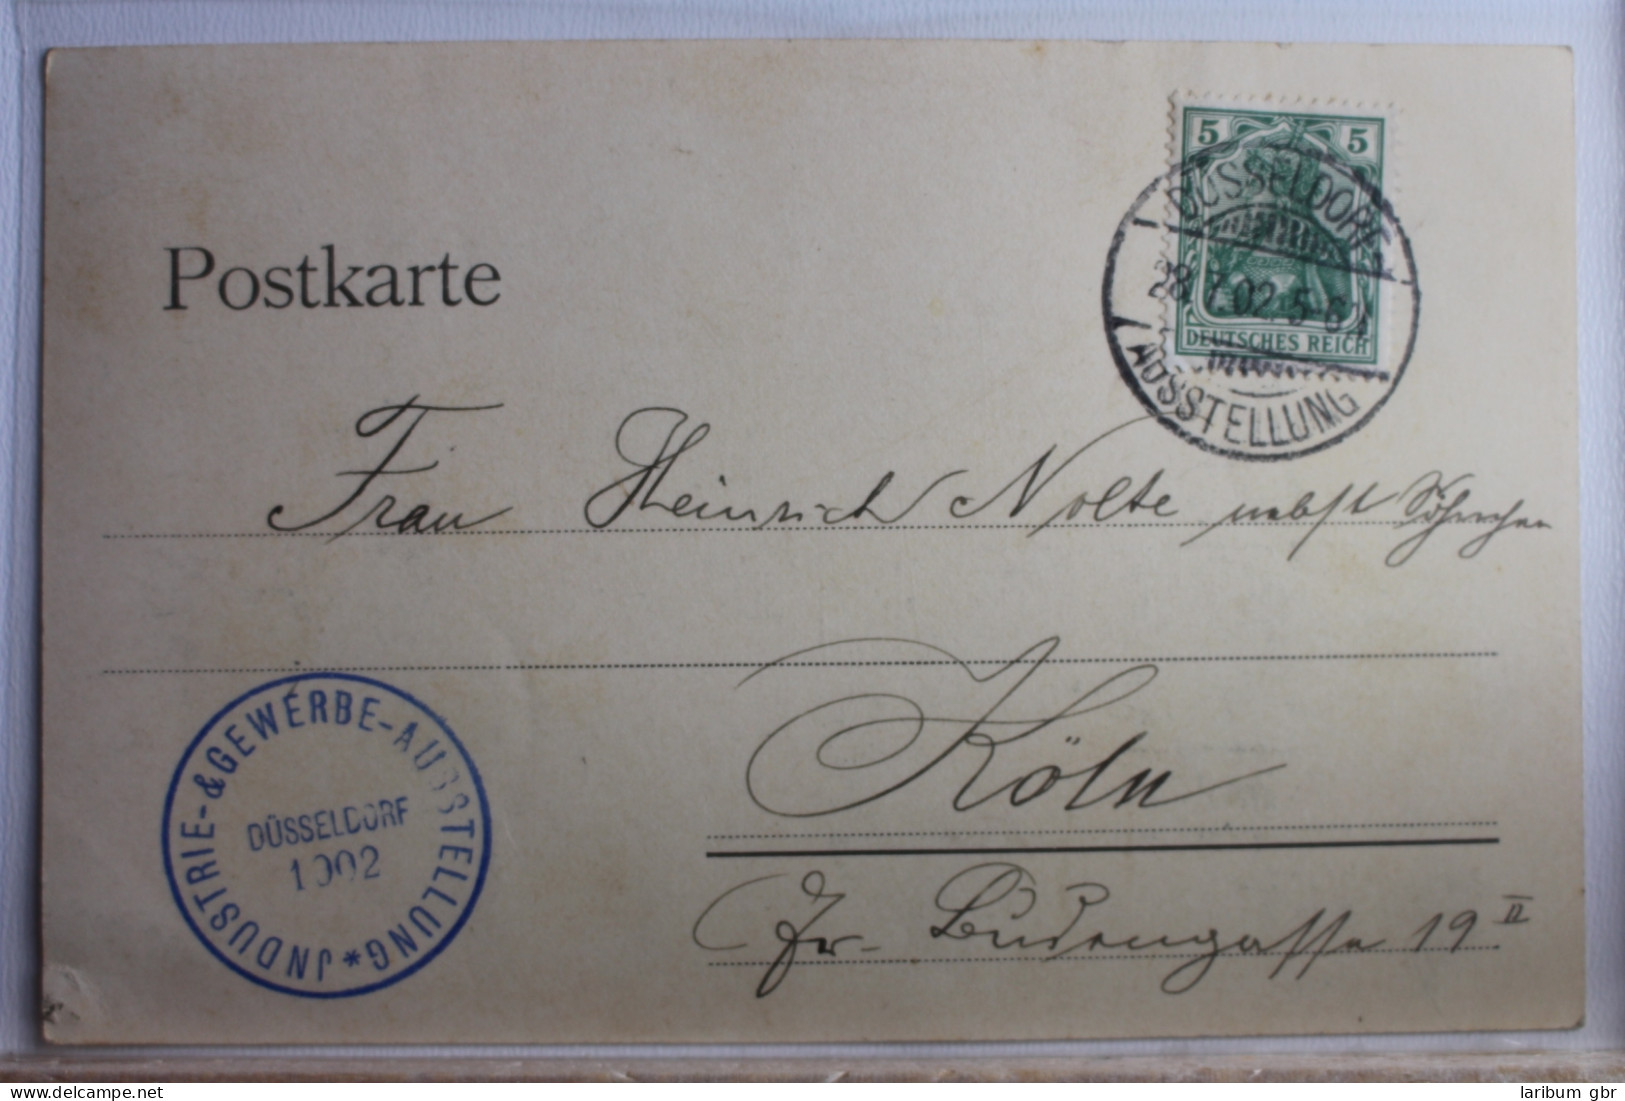 5 5
DÜSSELDORF
28.7.02.5-6
AUSSTELLUNG
DEUTSCHES REICH
Postkarte
Frau Heinrich Nolte nebst Söhnchen
Köln
Gr. Budengasse 19 II
JNDUSTRIE-&GEWERBE-AUSSTELLUNG*
DÜSSELDORF
1902
delcampe.net
laribum gbr